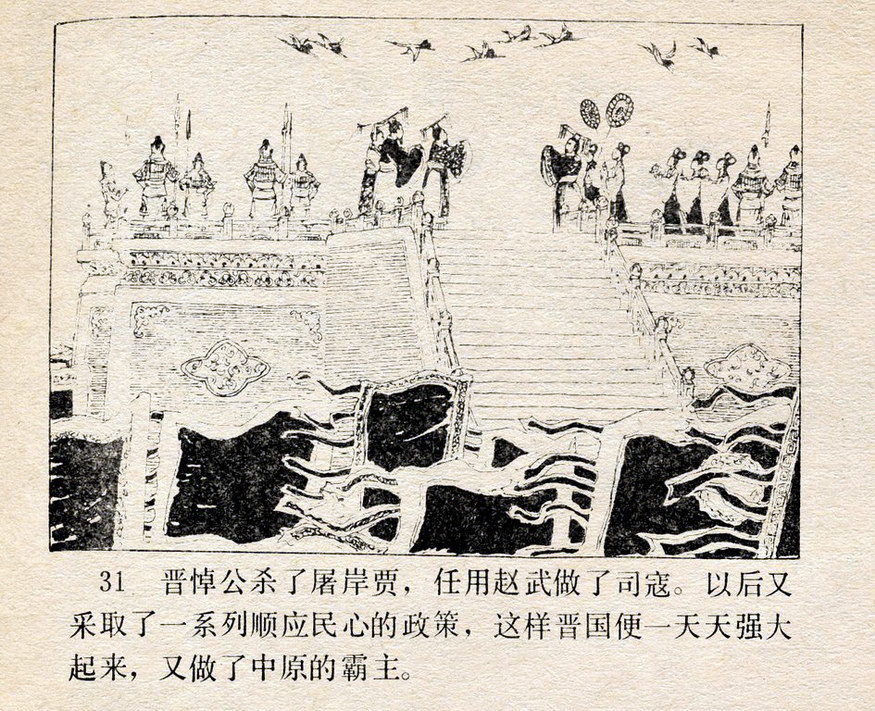 31 晋悼公杀了屠岸贾，任用赵武做了司寇。以后又
采取了一系列顺应民心的政策，这样晋国便一天天强大
起来，又做了中原的霸主。